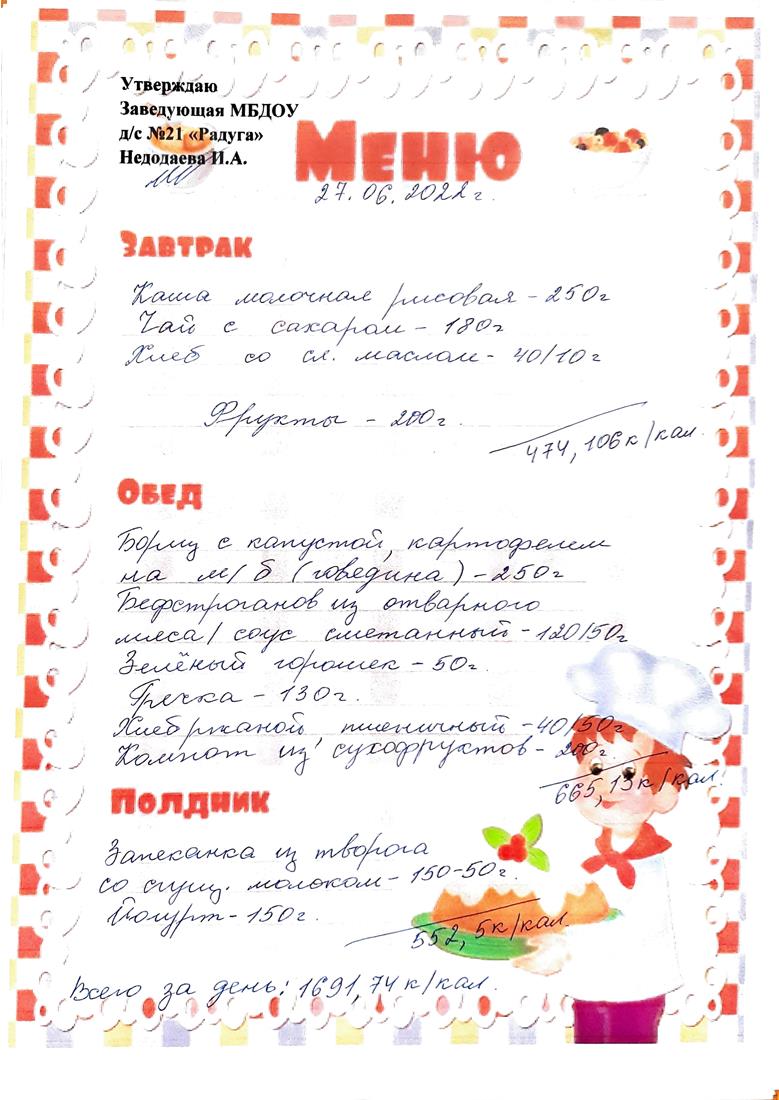 Утверждаю
Заведующая МБДОУ
д/с №21 «Радуга»
Недодаева И.А.
Меню
27.06.2022г.
Завтрак
Каша молочная рисовая - 250г
Чай с сахаром - 180г
Хлеб со сл. маслом - 40/10г
Фрукты - 200г.
474,106к/кал.
Обед
Борщ с капустой, картофелем
на м/б (говядина) - 250г
Бефстроганов из отварного
мяса/ соус сметанный - 120/50г
Зелёный горошек - 50г.
Гречка - 130г.
Хлеб ржаной, пшеничный - 40/50г
Компот из сухофруктов - 200г.
665,13к/кал.
Полдник
Запеканка из творога
со сгущ. молоком - 150-50г.
Йогурт - 150г.
552,5к/кал.
Всего за день: 1691,74к/кал.